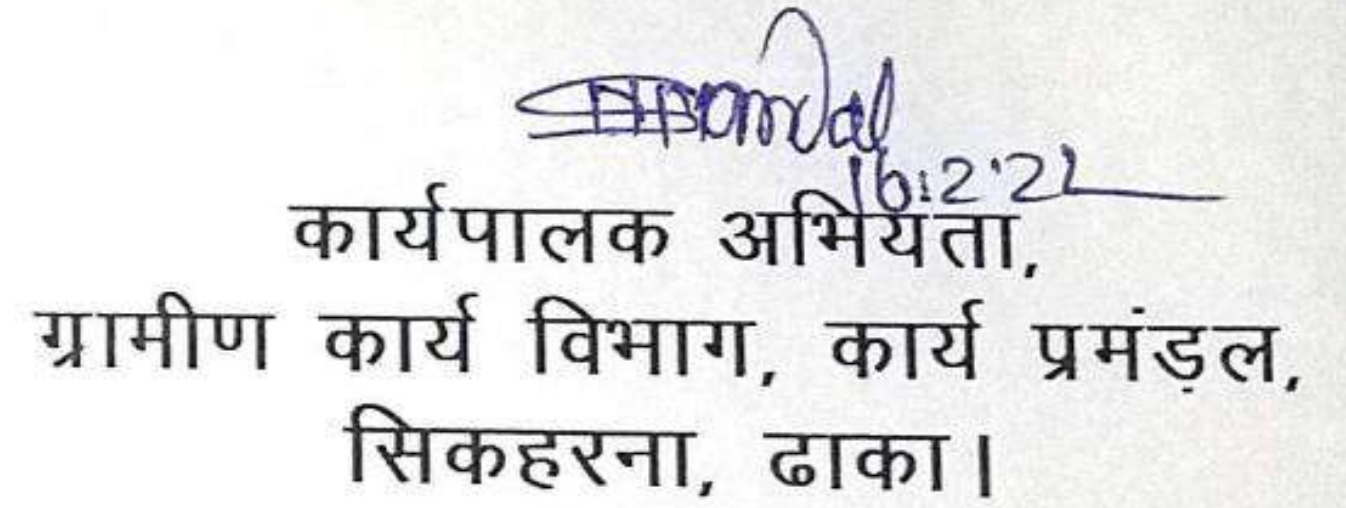 16.2.22
कार्यपालक अभियंता,
ग्रामीण कार्य विभाग, कार्य प्रमंड़ल,
सिकहरना, ढाका।